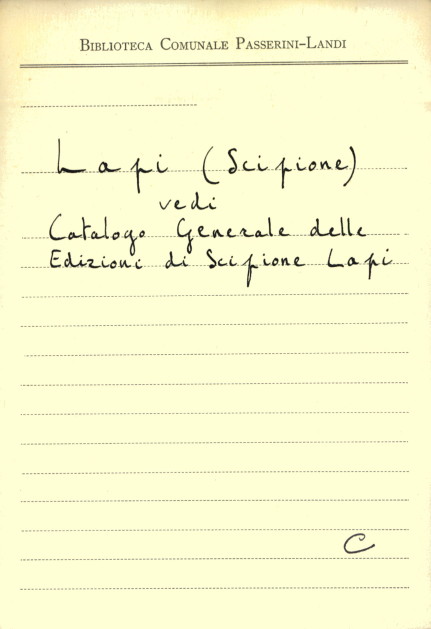 Biblioteca Comunale Passerini-Landi
Lapi (Scipione)
vedi
Catalogo Generale delle
Edizioni di Scipione Lapi
C